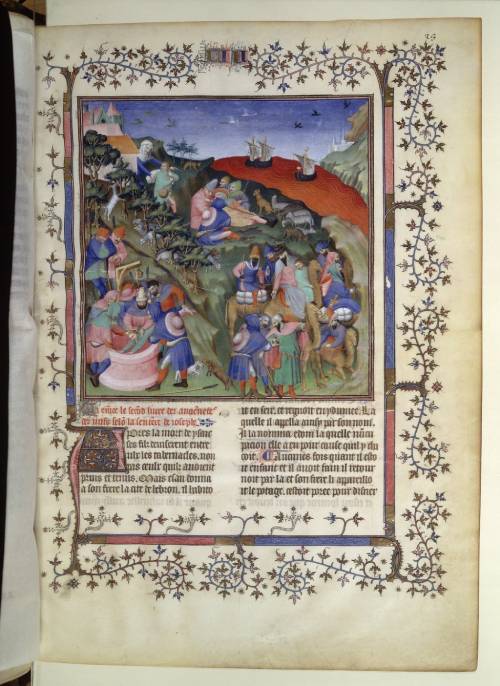 le second livre des anciennetes
des iuifs selo la sentence de ioseph
Apres la mort de ysaac
ses filz diviserent entre
eulx les tabernacles. non
pas ceulx quilz avoient
prins et tenus. Mais esau donna
a son frere la cite de hebron. il habita
it en seir. et regnoit en ydumee. La
quelle il appella ainsy par son nom.
Il la nomma edom la quelle nuncu
pacion elle a eu pour cause quil y
Aucunes fois quant il estoi
it enfant et il avoit faim il retour
noit par la et son frere li appareillo
it le potage. cestoit poree pour disner